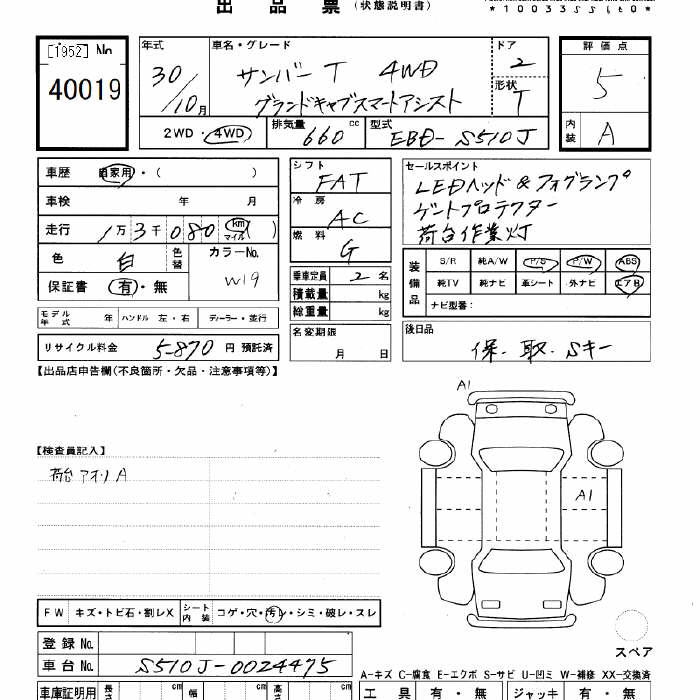 出品票 (状態説明書)
*10033SS160*
[1952] No
40019
年式 30/10月
車名・グレード サンバーT 4WD
グランドキャブスマートアシスト
ドア 2
形状 T
評価点 5
内装 A
2WD・4WD 排気量 660 cc 型式 EBD-S510J
車歴 自家用・( )
車検 年 月
走行 1万3千080 km マイル ( )
色 白 色替 カラーNo. W19
保証書 有・無
シフト FAT
冷房 AC
燃料 G
セールスポイント
LEDヘッド&フォグランプ
ゲートプロテクター
荷台作業灯
装備品 S/R 純A/W P/S P/W ABS
純TV 純ナビ 革シート 外ナビ エアB
ナビ型番:
乗車定員 2 名
積載量 kg
総重量 kg
モデル年式 年 ハンドル 左・右 ディーラー・並行
リサイクル料金 5870 円 預託済
名変期限 月 日
後日品 保.取.Sキー
【出品店申告欄(不良箇所・欠品・注意事項等)】
【検査員記入】
荷台アオリA
A1
A1
FW キズ・トビ石・割レX シート内装 コゲ・穴・汚レ・シミ・破レ・スレ
スペア
登録No.
車台No. S510J-0024475
A-キズ C-腐食 E-エクボ S-サビ U-凹ミ W-補修 XX-交換済
車庫証明用 長さ cm 幅 cm 高さ cm
工具 有・無 ジャッキ 有・無